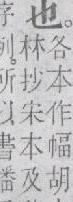 各本作幅胡
也。林抄宋本及
序例所以書